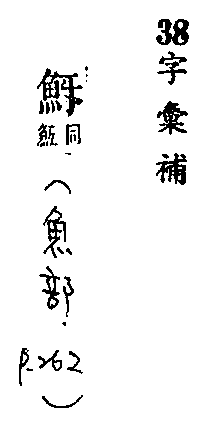 38字彙補
同
（魚部．P.262）